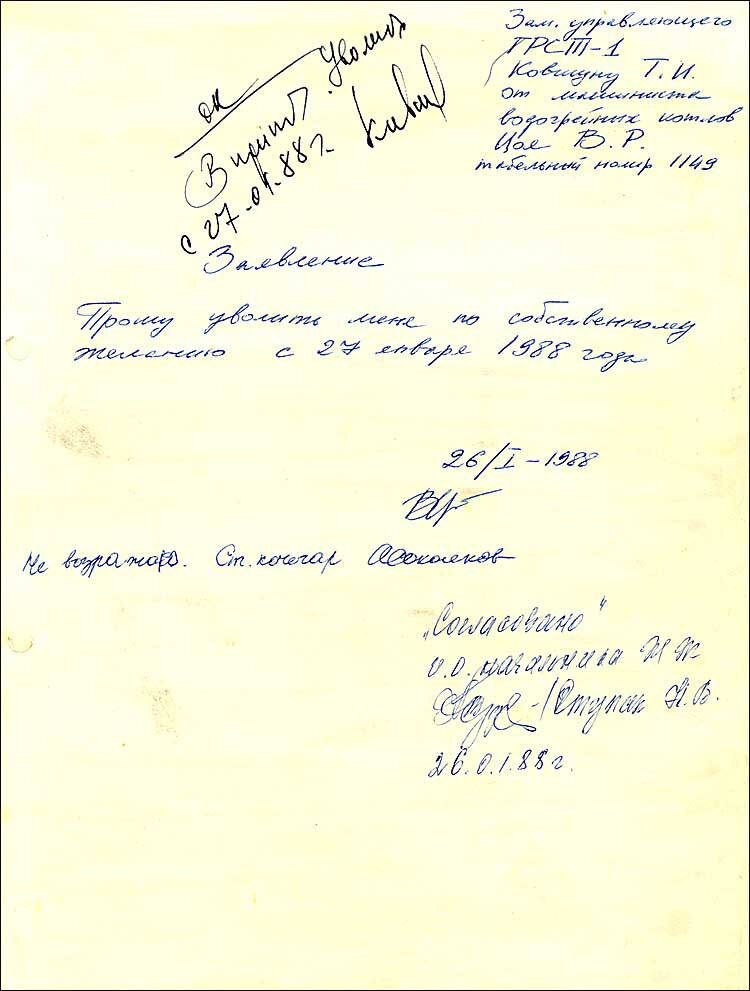 Зам. управляющего
ТРСТ-1
Ковтуну Т.И.
от машиниста
водогрейных котлов
Цоя В. Р.
табельный номер 1149
ОК
Уволить
с 27.01.88г.
Заявление
Прошу уволить меня по собственному
желанию с 27 января 1988 года
26/I-1988
Не возражаю. Ст. кочегар
„Согласовано"
и.о. начальника
Ступак Н.В.
26.01.88г.